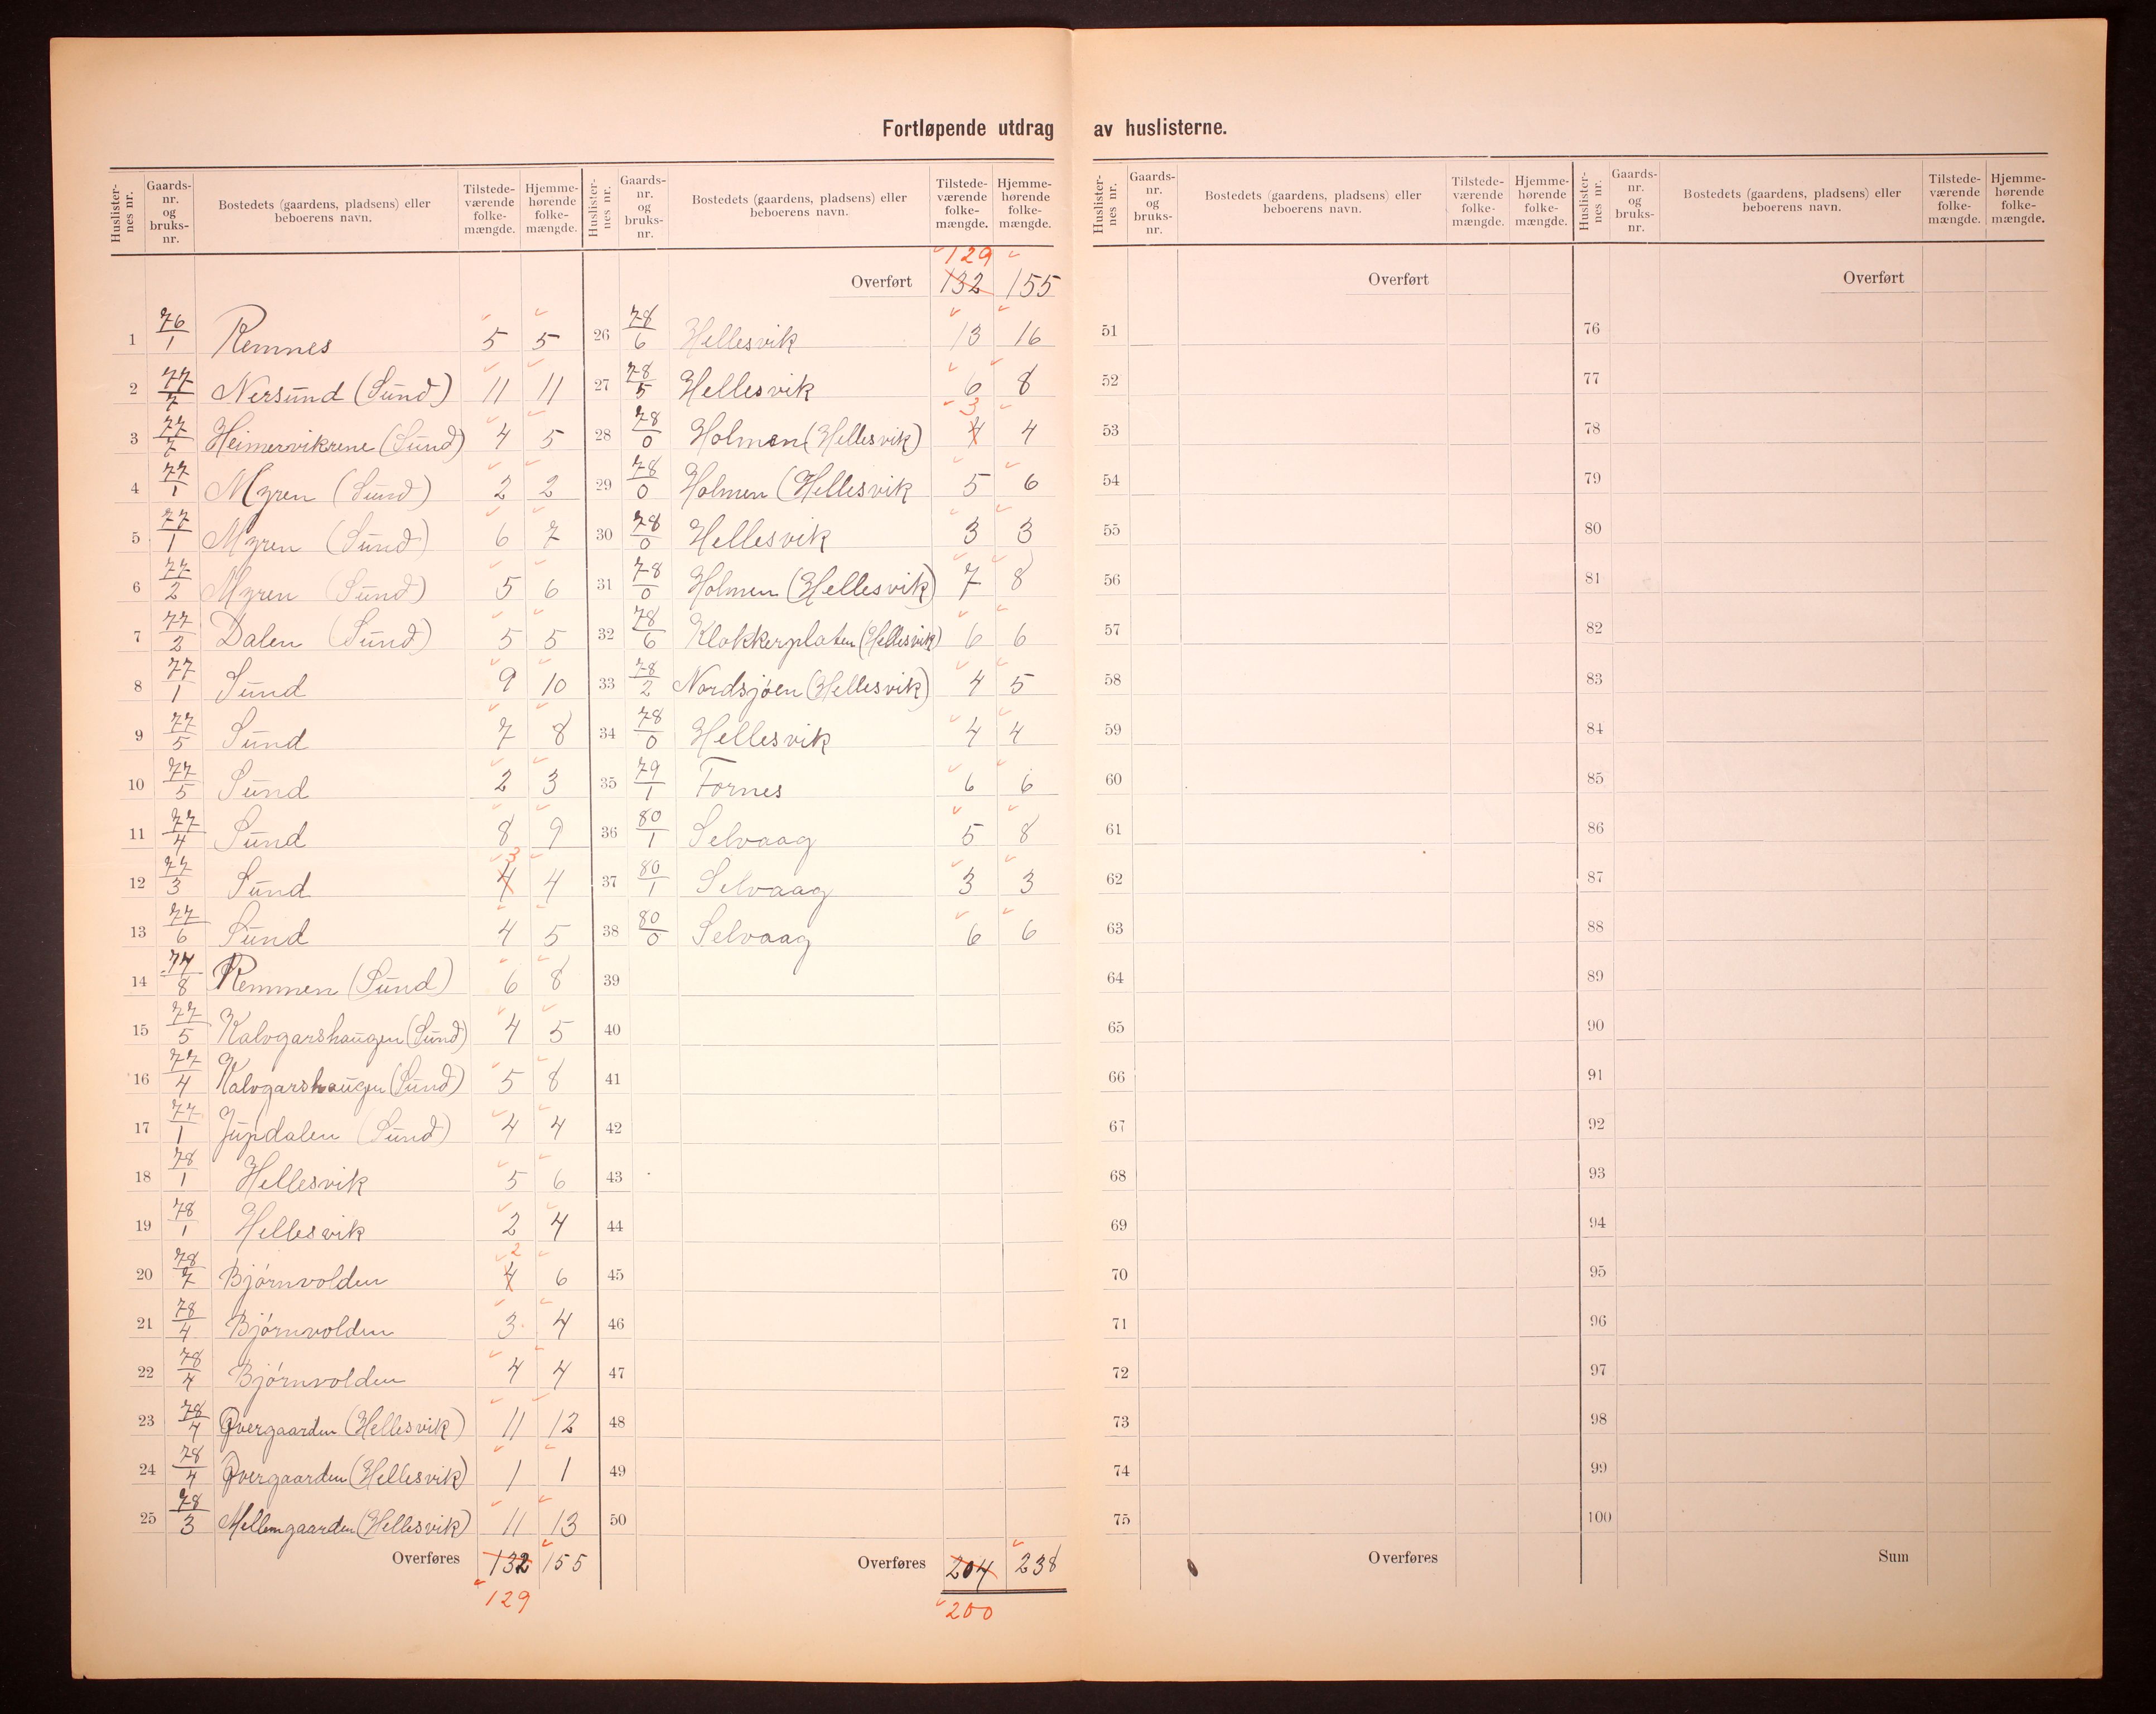 Fortløpende utdrag av huslisterne.
Huslister-nes nr. Gaards-nr. og bruks-nr. Bostedets (gaardens, pladsens) eller beboerens navn. Tilstede-værende folke-mængde. Hjemme-hørende folke-mængde.
1 76/1 Remnes 5 5
2 77/7 Nersund (Sund) 11 11
3 77/7 Heimervikrene (Sund) 4 5
4 77/1 Myren (Sund) 2 2
5 77/1 Myren (Sund) 6 7
6 77/2 Myren (Sund) 5 6
7 77/2 Dalen (Sund) 5 5
8 77/1 Sund 9 10
9 77/5 Sund 7 8
10 77/5 Sund 2 3
11 77/4 Sund 8 9
12 77/3 Sund 4 3 4
13 77/6 Sund 4 5
14 77/8 Remmen (Sund) 6 8
15 77/5 Kalvgarshaugen (Sund) 4 5
16 77/4 Kalvgarshaugen (Sund) 5 8
17 77/1 Jupdalen (Sund) 4 4
18 78/1 Hellesvik 5 6
19 78/1 Hellesvik 2 4
20 78/7 Bjørnvolden 4 2 6
21 78/4 Bjørnvolden 3 4
22 78/4 Bjørnvolden 4 4
23 78/4 Øvergaarden (Hellesvik) 11 12
24 78/4 Øvergaarden (Hellesvik) 1 1
25 78/3 Mellemgaarden (Hellesvik) 11 13
Overføres 132 155
129
Huslister-nes nr. Gaards-nr. og bruks-nr. Bostedets (gaardens, pladsens) eller beboerens navn. Tilstede-værende folke-mængde. Hjemme-hørende folke-mængde.
129
Overført 132 155
26 78/6 Hellesvik 13 16
27 78/5 Hellesvik 6 8
28 78/0 Holmen (Hellesvik) 4 3 4
29 78/0 Holmen (Hellesvik 5 6
30 78/0 Hellesvik 3 3
31 78/0 Holmen (Hellesvik) 7 8
32 78/6 Klokkerplaten (Hellesvik) 6 6
33 78/2 Nordsjøen (Hellesvik) 4 5
34 78/0 Hellesvik 4 4
35 79/1 Fornes 6 6
36 80/1 Selvaag 5 8
37 80/1 Selvaag 3 3
38 80/0 Selvaag 6 6
39
40
41
42
43
44
45
46
47
48
49
50
Overføres 204 238
200
Huslister-nes nr. Gaards-nr. og bruks-nr. Bostedets (gaardens, pladsens) eller beboerens navn. Tilstede-værende folke-mængde. Hjemme-hørende folke-mængde.
Overført
51
52
53
54
55
56
57
58
59
60
61
62
63
64
65
66
67
68
69
70
71
72
73
74
75
Overføres
Huslister-nes nr. Gaards-nr. og bruks-nr. Bostedets (gaardens, pladsens) eller beboerens navn. Tilstede-værende folke-mængde. Hjemme-hørende folke-mængde.
Overført
76
77
78
79
80
81
82
83
84
85
86
87
88
89
90
91
92
93
94
95
96
97
98
99
100
Sum